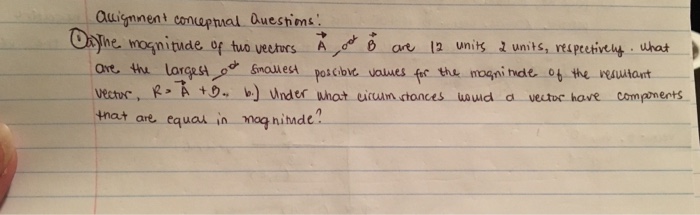 Assignment conceptual Questions:
① a) The magnitude of two vectors A and B are 12 units 2 units, respectively. What
are the largest and smallest possible values for the magnitude of the resultant
vector, R = A + B. b.) Under what circumstances would a vector have components
that are equal in magnitude?